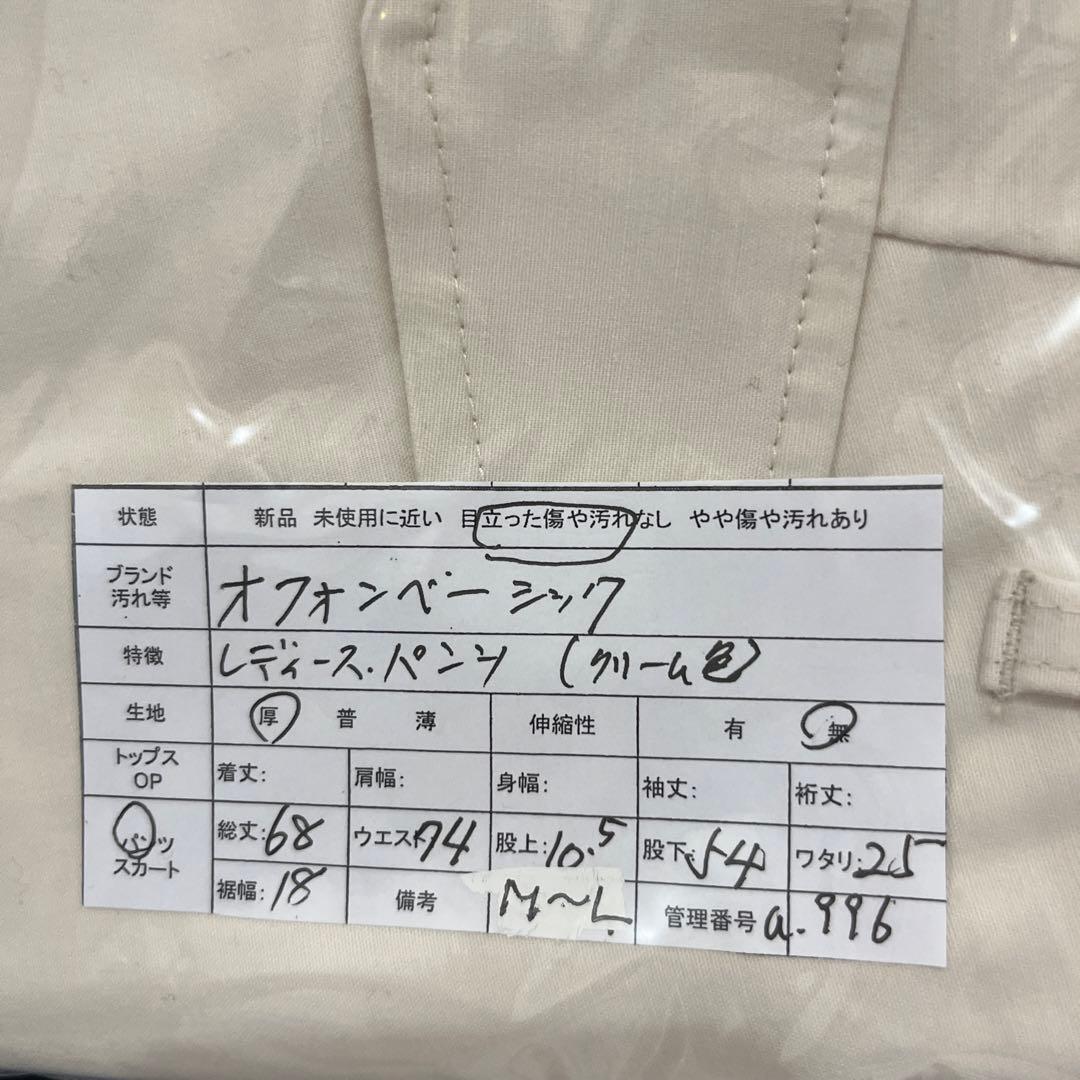 状態 新品 未使用に近い 目立った傷や汚れなし やや傷や汚れあり
ブランド
汚れ等 オフォンベーシック
特徴 レディース.パンツ (クリーム色)
生地 厚 普 薄 伸縮性 有 無
トップス
OP 着丈: 肩幅: 身幅: 袖丈: 裄丈:
パンツ
スカート 総丈:68 ウエスト74 股上:10.5 股下:54 ワタリ:25
裾幅:18 備考 M～L 管理番号 a.996